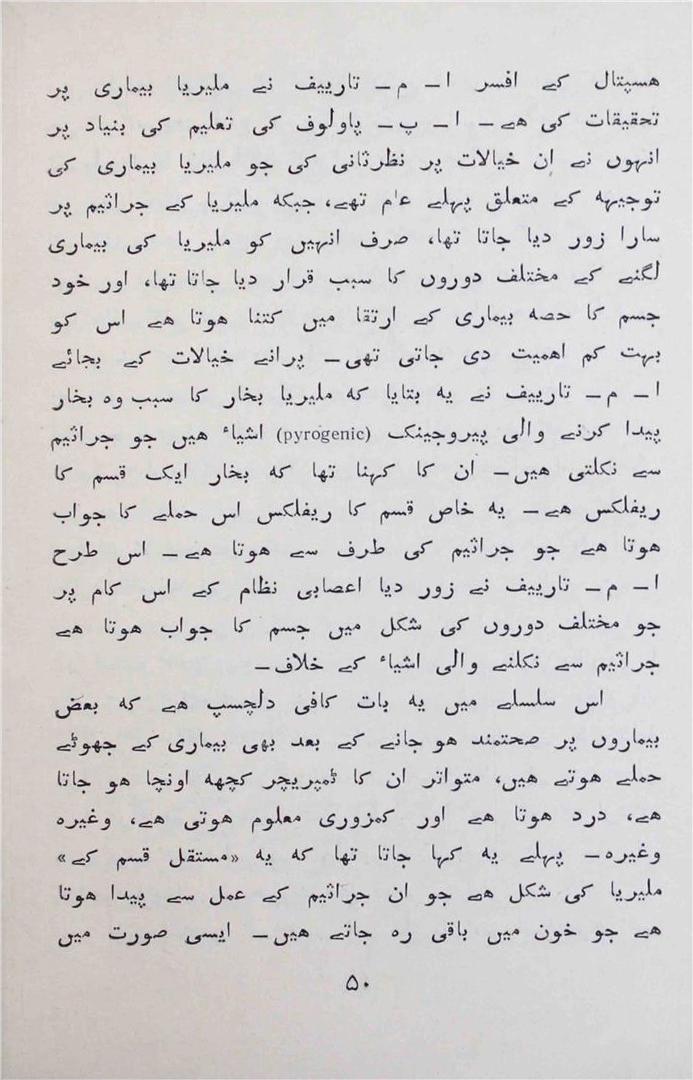 هسپتال کے افسر ا۔ م۔ تارییف نے ملیریا بیماری پر
تحقیقات کی هے۔ ا۔ پ۔ پاولوف کی تعلیم کی بنیاد پر
انہوں نے اِن خیالات پر نظرثانی کی جو ملیریا بیماری کی
توجیہه کے متعلق پہلے عام تھے، جبکه ملیریا کے جراثیم پر
سارا زور دیا جاتا تھا، صرف انہیں کو ملیریا کی بیماری
لگنے کے مختلف دوروں کا سبب قرار دیا جاتا تھا، اور خود
جسم کا حصه بیماری کے ارتقا میں کتنا هوتا هے اس کو
بہت کم اهمیت دی جاتی تھی۔ پرانے خیالات کے بجائے
ا۔ م۔ تارییف نے یه بتایا که ملیریا بخار کا سبب وہ بخار
پیدا کرنے والی پیروجینک (pyrogenic) اشیاء هیں جو جراثیم
سے نکلتی هیں۔ ان کا کہنا تھا که بخار ایک قسم کا
ریفلکس هے۔ یه خاص قسم کا ریفلکس اس حملے کا جواب
هوتا هے جو جراثیم کی طرف سے هوتا هے۔ اس طرح
ا۔ م۔ تارییف نے زور دیا اعصابی نظام کے اس کام پر
جو مختلف دوروں کی شکل میں جسم کا جواب هوتا هے
جراثیم سے نکلنے والی اشیاء کے خلاف۔
اس سلسلے میں یه بات کافی دلچسپ هے که بعض
بیماروں پر صحتمند هو جانے کے بعد بھی بیماری کے جھوٹے
حملے هوتے هیں، متواتر ان کا ٹمپریچر کچھه اونچا هو جاتا
هے، درد هوتا هے اور کمزوری معلوم هوتی هے، وغیرہ
وغیرہ۔ پہلے یه کہا جاتا تھا که یه «مستقل قسم کے»
ملیریا کی شکل هے جو ان جراثیم کے عمل سے پیدا هوتا
هے جو خون میں باقی رہ جاتے هیں۔ ایسی صورت میں
۵۰